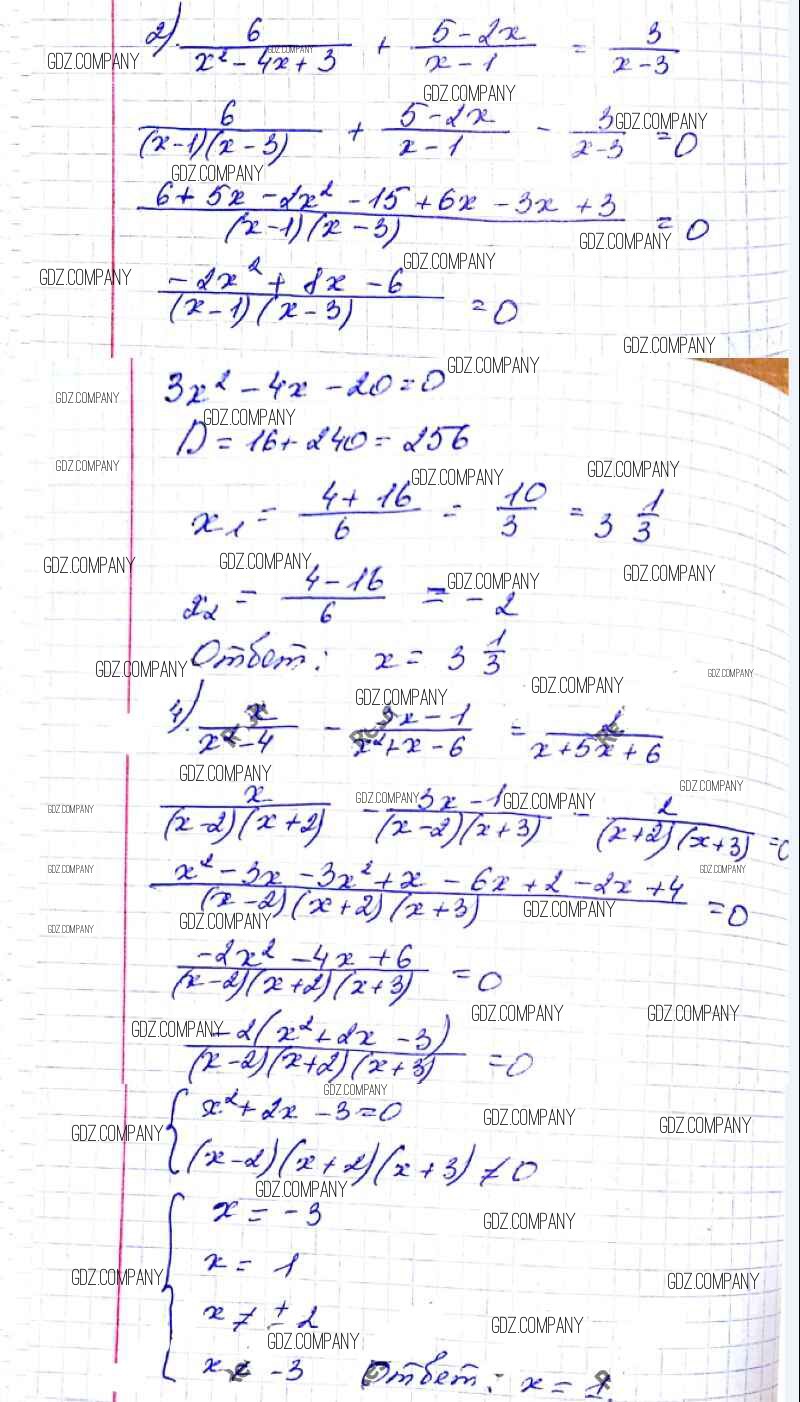 2). 6/(x² - 4x + 3) + (5 - 2x)/(x - 1) = 3/(x - 3)
6/((x-1)(x-3)) + (5-2x)/(x-1) - 3/(x-3) = 0
(6 + 5x - 2x² - 15 + 6x - 3x + 3)/((x-1)(x-3)) = 0
(-2x² + 8x - 6)/((x-1)(x-3)) = 0
3x² - 4x - 20 = 0
D = 16 + 240 = 256
x₁ = (4 + 16)/6 = 10/3 = 3 1/3
x₂ = (4 - 16)/6 = -2
Ответ: x = 3 1/3
4). x/(x² - 4) - (3x - 1)/(x² + x - 6) = 2/(x + 5x + 6)
x/((x-2)(x+2)) - (3x-1)/((x-2)(x+3)) - 2/((x+2)(x+3)) = 0
(x² - 3x - 3x² + x - 6x + 2 - 2x + 4)/((x-2)(x+2)(x+3)) = 0
(-2x² - 4x + 6)/((x-2)(x+2)(x+3)) = 0
-2(x² + 2x - 3)/((x-2)(x+2)(x+3)) = 0
{ x² + 2x - 3 = 0
(x-2)(x+2)(x+3) ≠ 0
{ x = -3
x = 1
x ≠ ± 2
x ≠ -3 Ответ: x = 1.
GDZ.COMPANY